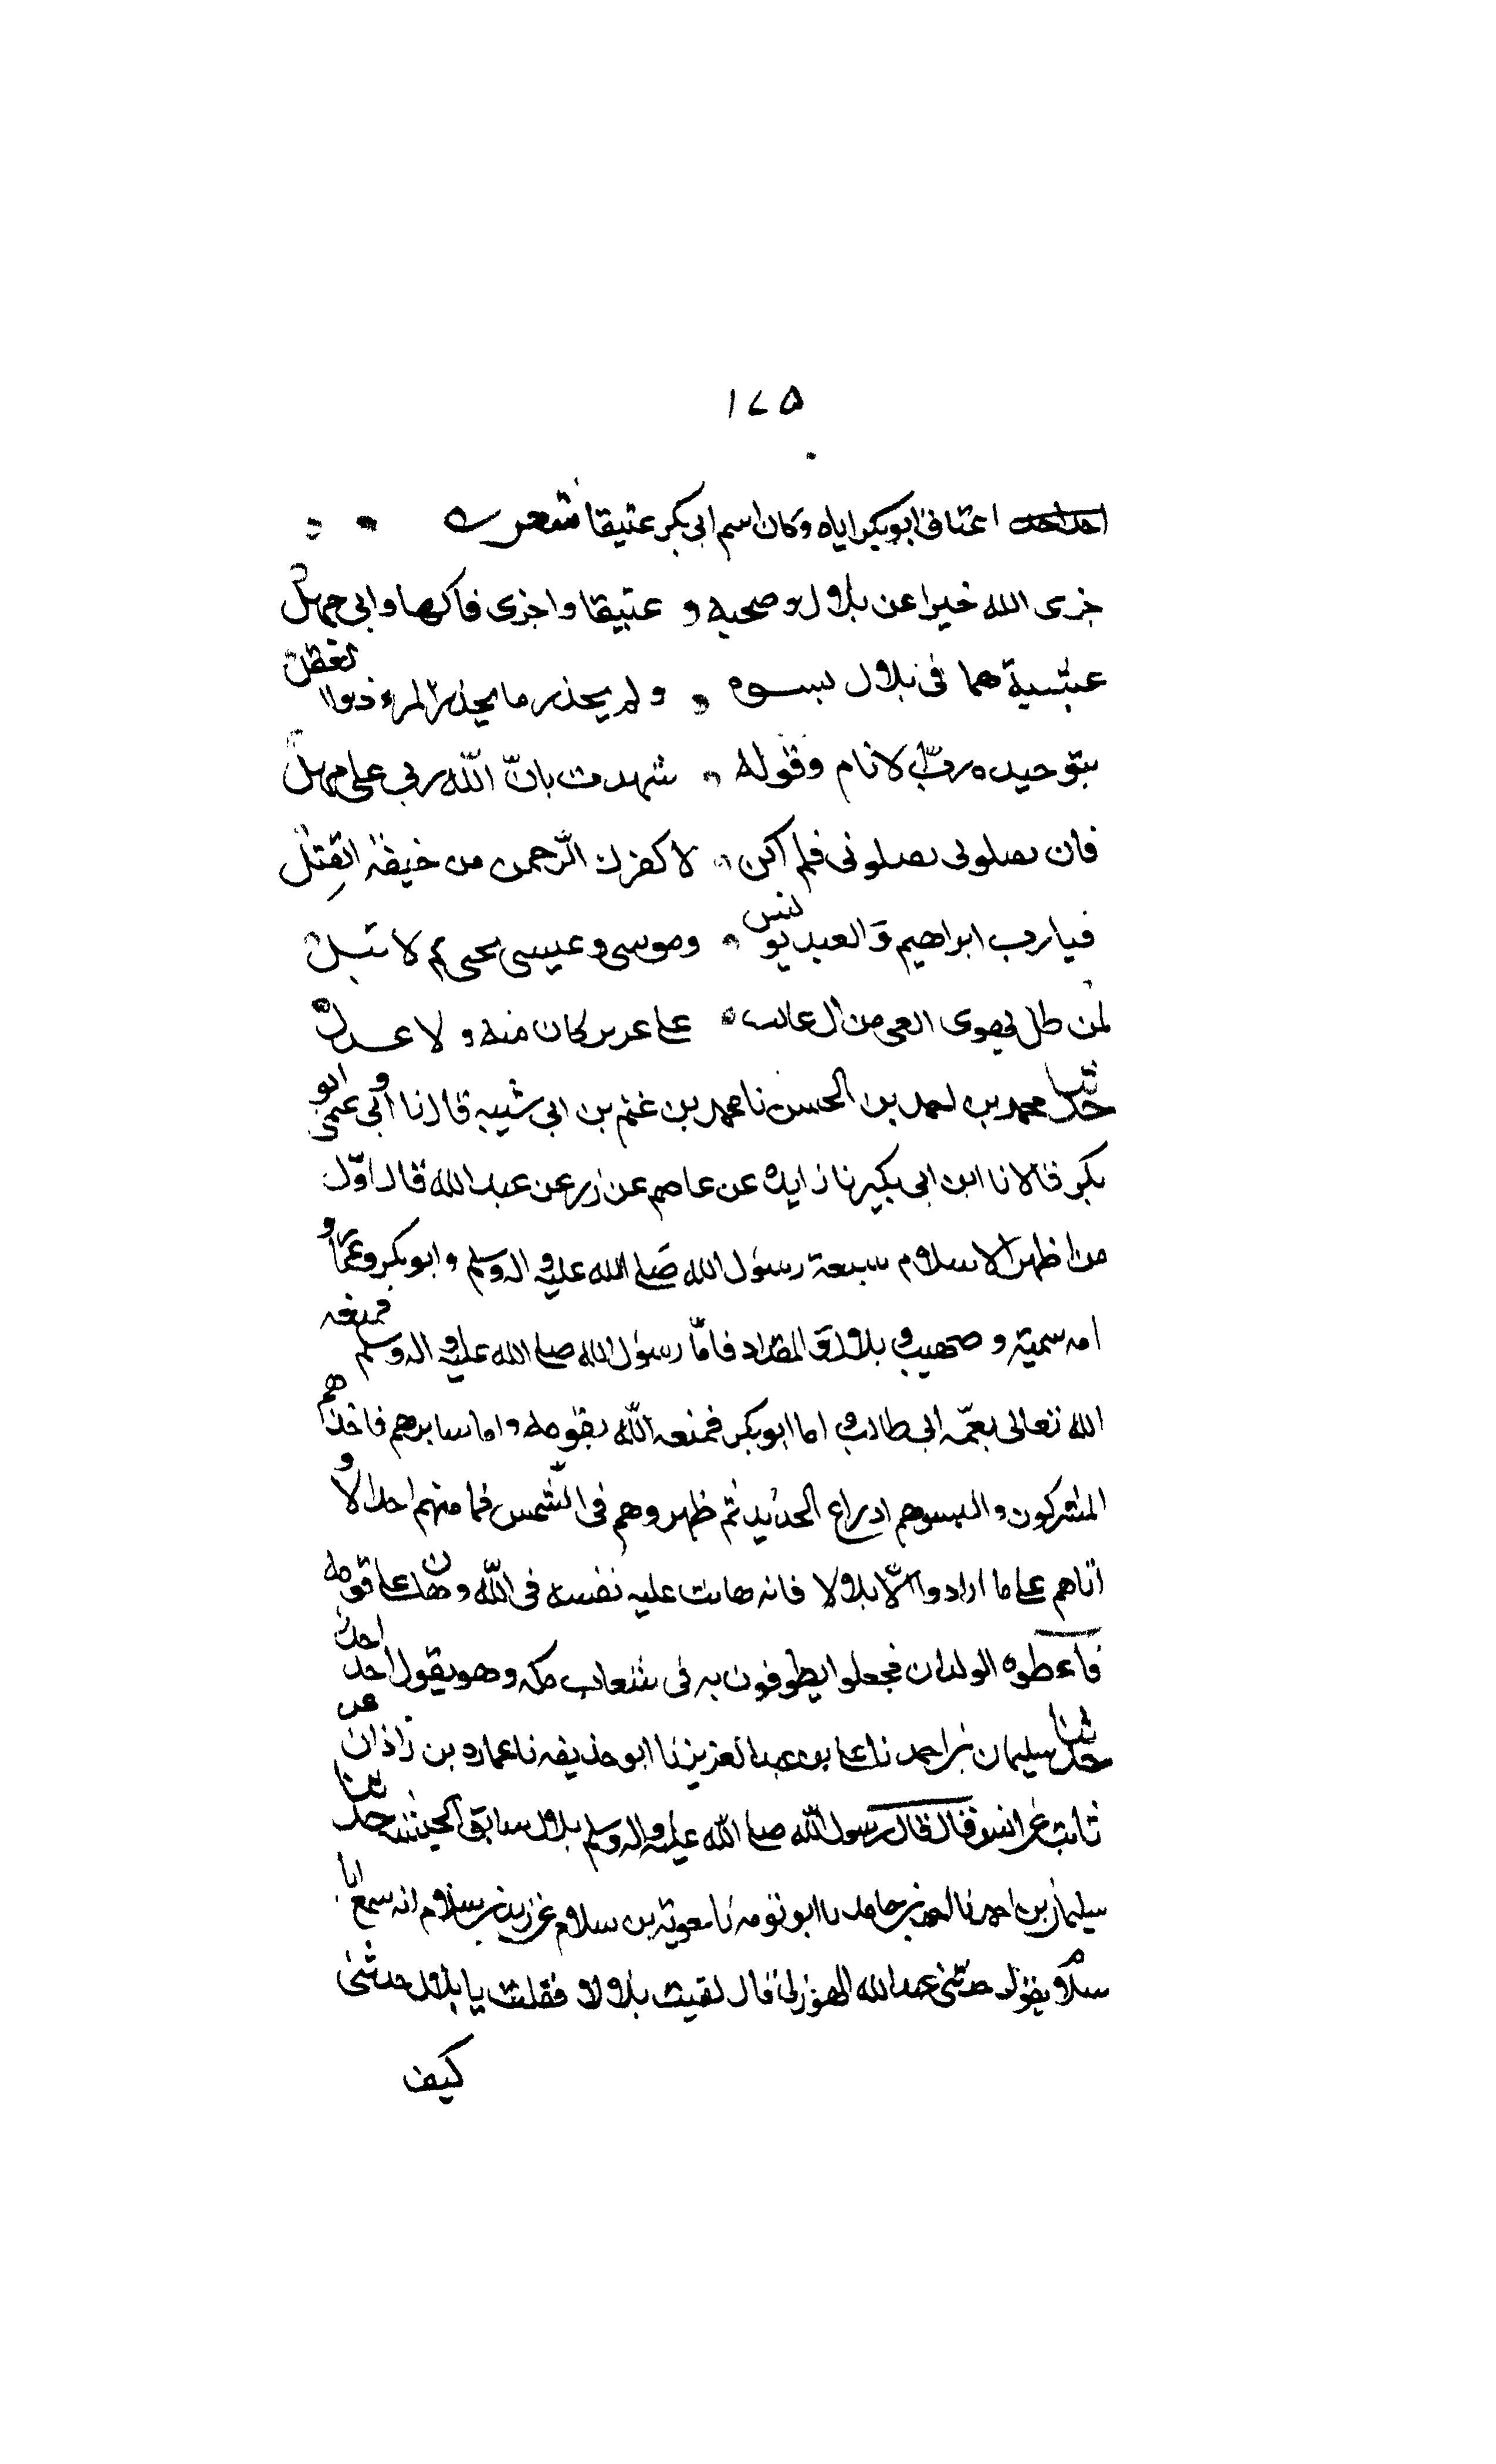 ١٧٥
احد احد اعتاق ابوبكر اياه وكان اسم ابى بكر عتيقا شعر
جزى الله خيرا عن بلال وصحبه و عتيقا واخزى فاكها وابى جهل
عشية هما فى بلال بسوه ولم يحذر ما يحذر المرء ذوالعقل
بتوحيده رب الانام وقوله شهدت بان الله ربى على مهل
فان يقتلونى يقتلونى فلم اكن لاكفر الرحمن من خيفة القتل
فيارب ابراهيم والعبد يونس وموسى وعيسى نجنى ثم لا تبل
لمن ظل يهوى الغى من ال غالب على غير بر كان منه ولا عدل
حدثنا محمد بن احمد بن الحسن نا محمد بن عثم بن ابى شيبه قال نا ابى وعمى ابو
بكر قالا نا ابن ابى بكير نا زايده عن عاصم عن زر عن عبد الله قال اول
من اظهر الاسلام سبعة رسول الله صلى الله عليه واله وسلم وابوبكر وعمار و
امه سمية و صهيب و بلال و المقداد فاما رسول الله صلى الله عليه واله وسلم فمنعه
الله تعالى بعمه ابى طالب و اما ابوبكر فمنعه الله بقومه واما سايرهم فاخذهم
المشركون و البسوهم ادراع الحديد ثم ظهروهم فى الشمس فما منهم احد الا و
اتاهم على ما ارادوا الا بلالا فانه هانت عليه نفسه فى الله وهان على قومه
فاعطوه الولدان فجعلوا يطوفون به فى شعاب مكه وهو يقول احد احد
حدثنا سليمان بن احمد نا على بن عبد العزيز نا ابو حذيفه نا عماره بن زاذان عن
ثابت عن انس قال قال رسول الله صلى الله عليه واله وسلم بلال سابق الحبشه حدثنا
سليمان بن احمد نا احمد بن حامد نا ابو توبه نا معوية بن سلام عن زيد بن سلام انه سمع ابا
سلام يقول حدثنى عبد الله الهوزنى قال لقيت بلالا فقلت يا بلال حدثنى
كيف